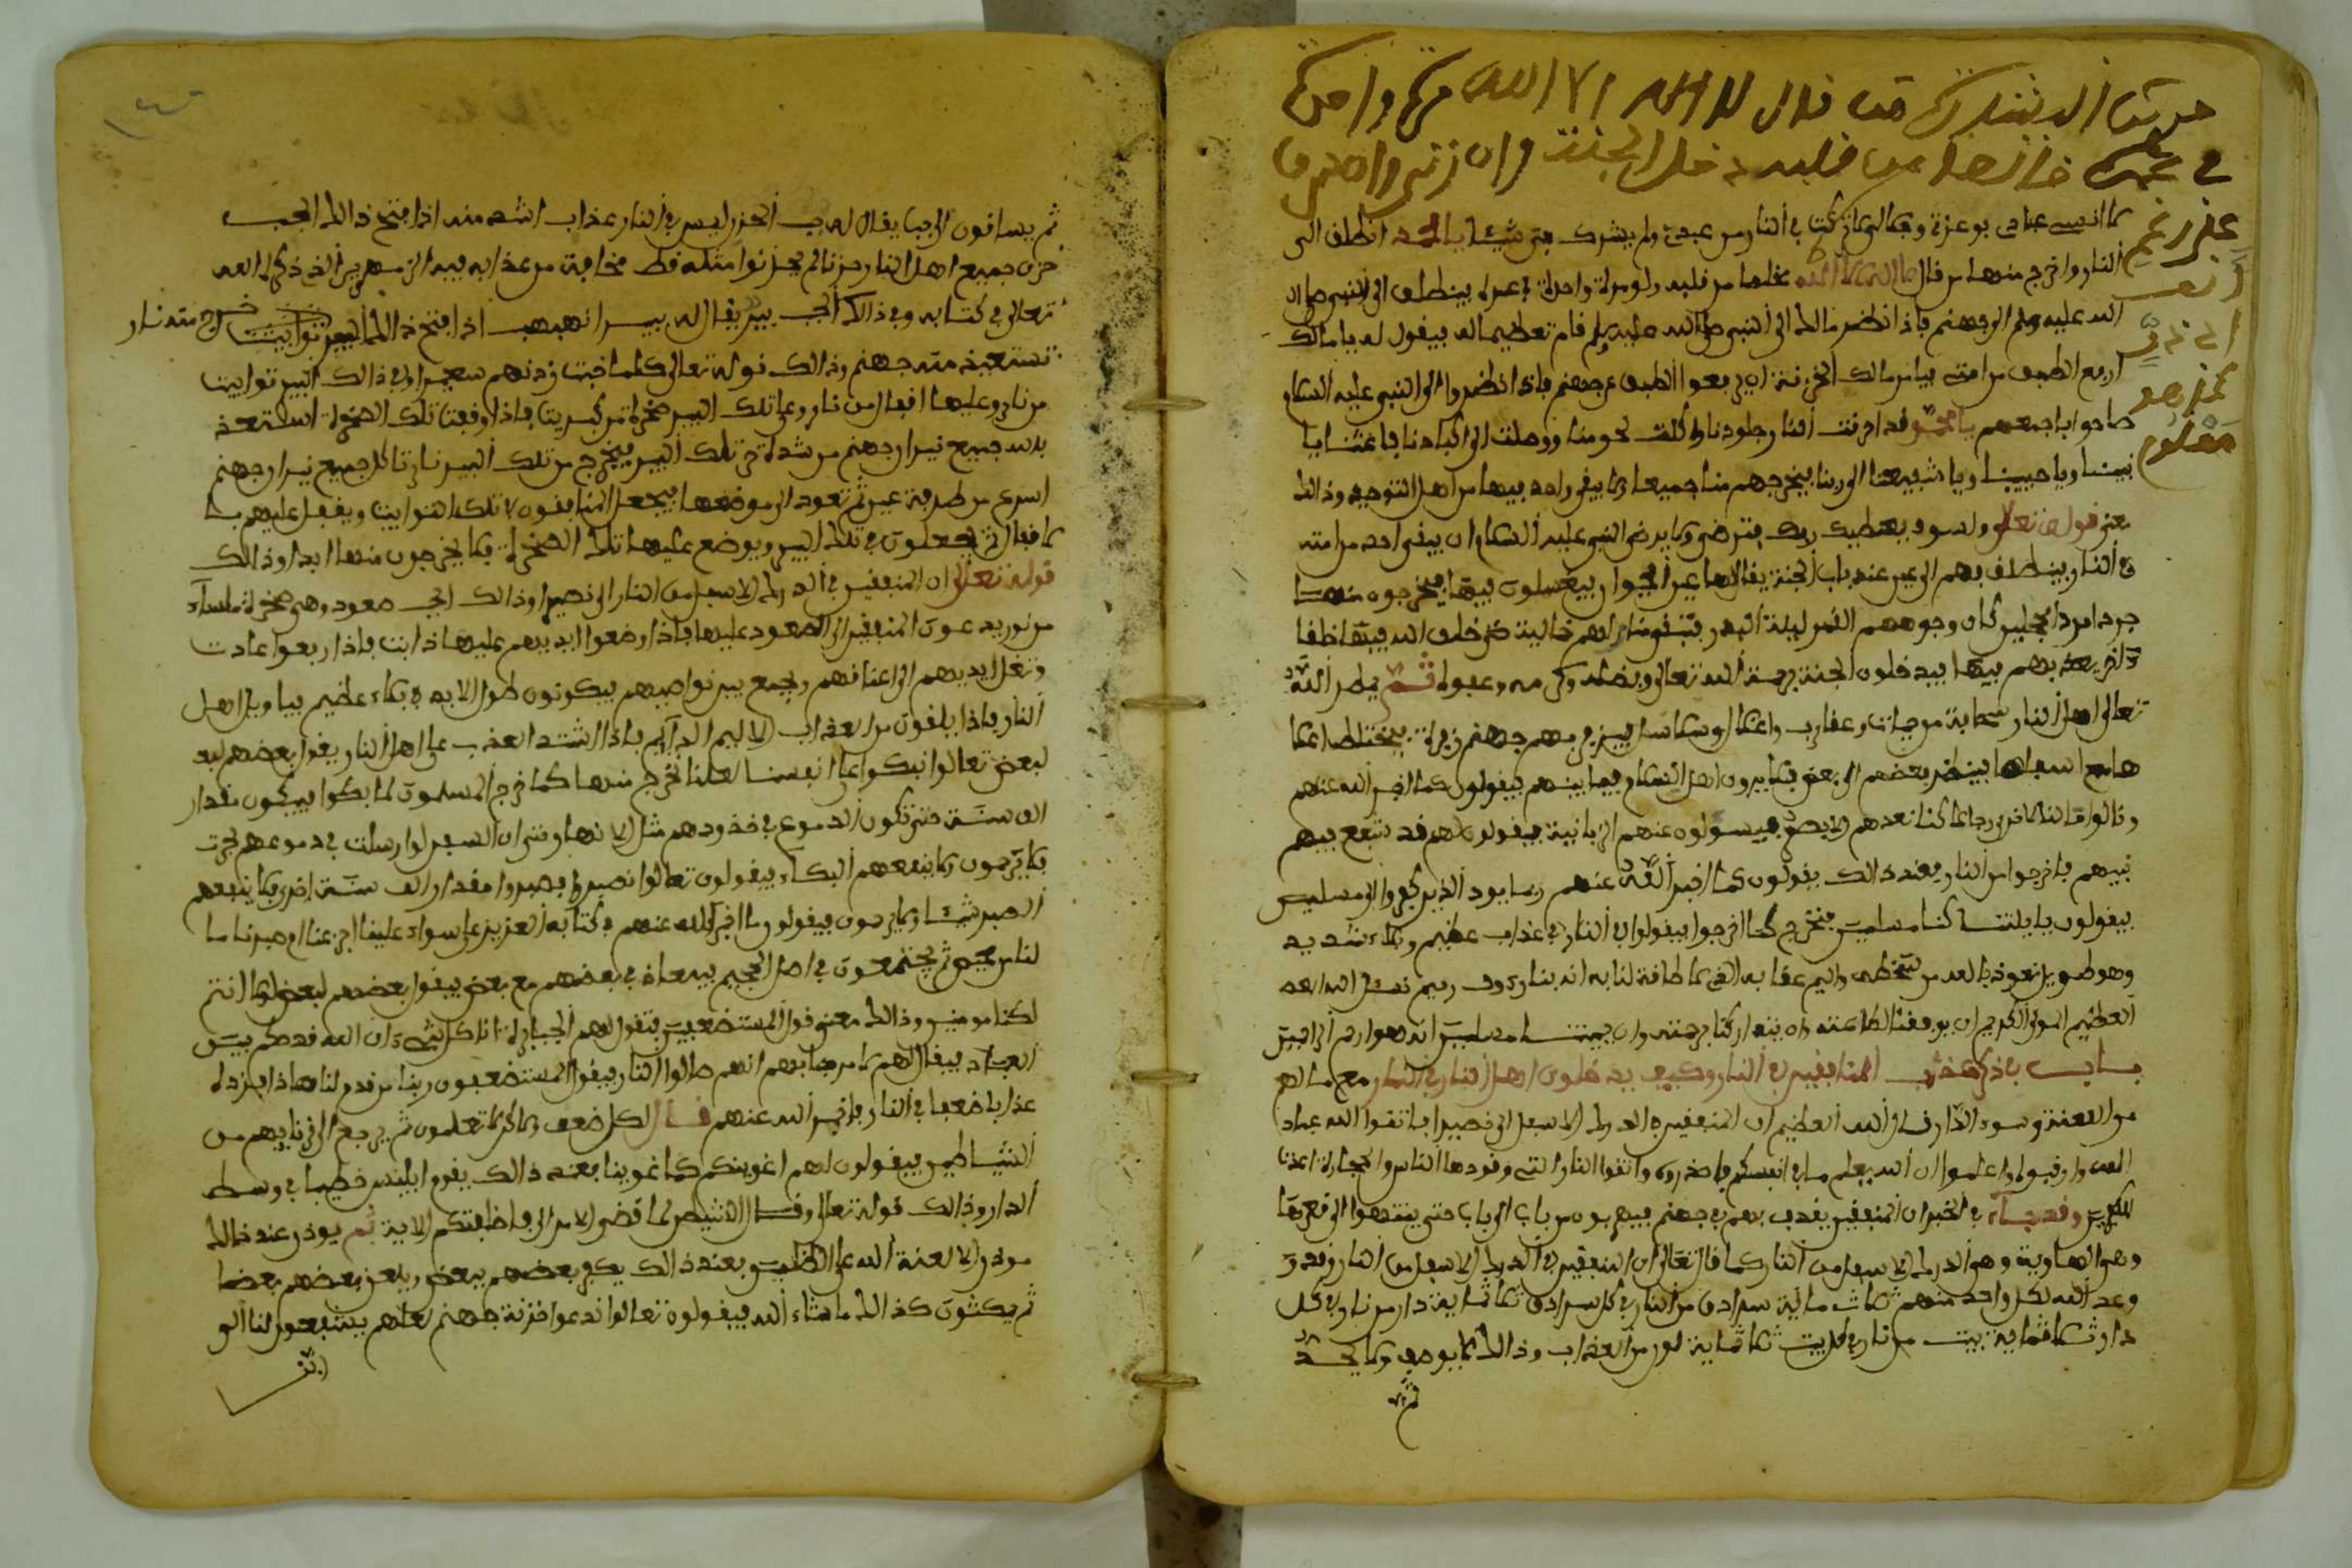 من قال لا اله الا الله مرة واحدة
في عمره خالصا من قلبه دخل الجنة وان زنى وان سرق
النار واخرج منها من قال لا اله الا الله مخلصا من قلبه ولو مرة واحدة في عمره ينطلق الى
الله عليه وسلم الى جهنم فاذا نظر مالك الى النبي صلى الله عليه وسلم قام تعظيما له فيقول له يا مالك
ارفع الطبق من امتي فيامر مالك الخزنة ان يرفعوا الطبق عن جهنم فاذا نظروا الى النبي عليه السلام
صاحوا باجمعهم يا محمد قد احرقت النار جلودنا واكلت لحومنا ووصلت الى اكبادنا فاغثنا يا
نبينا ويا حبيبنا ويا شفيعنا الى ربنا فيخرجهم منها جميعا ولا يبقى واحد فيها من اهل التوحيد وذلك
معنى قوله تعالى ولسوف يعطيك ربك فترضى ولا يرضى النبي عليه السلام ان يبقى احد من امته
في النار فينطلق بهم الى عين عند باب الجنة يقال لها عين الحيوان فيغتسلون فيها فيخرجون منها
جردا مردا مكحلين كان وجوههم القمر ليلة البدر
فيدخلون الجنة برحمة الله تعالى وبفضله وكرمه وعبوله ثم يمطر الله
تعالى اهل النار سحابة من حيات وعقارب واغلال وسلاسل
فينظر بعضهم الى بعض فلا يرون اهل الاسلام فيما بينهم فيقولون كما اخبر الله عنهم
وقالوا ما لنا لا نرى رجالا كنا نعدهم
فيهم فاخرجوا من النار فعند ذالك يقولون كما اخبر الله عنهم ربما يود الذين كفروا لو كانوا مسلمين
فيقولون يا ليتنا كنا مسلمين فنخرج كما اخرجوا فيقولوا في النار في عذاب عظيم وبلاء شديد
وهو طويل نعوذ بالله من سخطه واليم عقابه الذي لا طاقة لنا به انه بنا رءوف رحيم نسئل الله
العظيم المولى الكريم ان يوفقنا لطاعته وان يتداركنا برحمته وان يميتنا مسلمين انه هو ارحم الراحمين
باب في ذكر عذاب المنافقين في النار وكيف يدخلون اهل النار في النار مع ما لهم
من اللعنة وسوء الدار قال الله العظيم ان المنافقين في الدرك الاسفل الى نصيرا فاتقوا الله عباد
الله وارقبوه واعلموا ان الله يعلم ما في انفسكم فاحذروه واتقوا النار التي وقودها الناس والحجارة اعدت
للكافرين وقد جاء في الخبر ان المنافقين يعذب بهم في جهنم فيهربون من باب الى باب حتى ينتهوا الى قعرها
وهو الهاوية وهو الدرك الاسفل من النار كما قال تعالى ان المنافقين في الدرك الاسفل من النار وقد
وعد الله لكل واحد منهم ثلاث مائة سرادق من النار في كل سرادق ثلاثمائة دار من نار وفي كل
دار ثلاثمائة بيت من نار في كل بيت ثلاثمائة لون من العذاب وذالك لا يوصف ولا يحد
ثم
ثم يساقون الى جب يقال له جب الحزن ليس في النار عذاب اشد منه اذا فتح ذالك الجب
حزن جميع اهل النار حزنا لم يحزنوا مثله قط مخافة من عذابه فيه الزمهرير الذي ذكره الله
تعالى في كتابه وفي ذالك الجب بير يقال له بير الهبهب اذا فتح ذالك البير خرج منه نار
تستعيذ منه جهنم وذالك قوله تعالى كلما خبت زدنهم سعيرا وفي ذالك البير توابيت
من نار وعليها اقفال من نار وعلى تلك البير صخرة من كبريت فاذا وقعت تلك الصخرة استعذ
بالله جميع نيران جهنم من شدة حر تلك البير فيخرج من تلك البير نار تاكل جميع نيران جهنم
اسرع من طرفة عين ثم تعود الى موضعها فيجعل المنافقون في تلك التوابيت ويقفل عليهم بتلك
الاقفال ثم يجعلون في تلك البير ويوضع عليها تلك الصخرة فلا يخرجون منها ابدا وذالك
قوله تعالى ان المنفقين في الدرك الاسفل من النار الى نصيرا وذالك الجب صعود وهي صخرة ملساء
من نور يدعون المنفقين الى الصعود عليها فاذا وضعوا ايديهم عليها ذابت فاذا رفعوا عادت
وتغل ايديهم الى اعناقهم ويجمع بين نواصيهم فيكونون طول الابد في بكاء عظيم فيا ويل اهل
النار ماذا يلقون من العذاب الاليم الدايم فاذا اشتد العذاب على اهل النار يقول بعضهم
لبعض تعالوا نبكوا على انفسنا لعلنا نخرج منها كما خرج المسلمون لما بكوا فيبكون مقدار
الف سنة حتى تكون الدموع في خدودهم مثل الانهار وحتى ان السفن لو ارسلت في دموعهم لجرت
فلا يرحمون ولا ينفعهم البكاء فيقولون تعالوا نصبروا فيصبروا مقدار الف سنة اخرى فلا ينفعهم
الصبر شيئا ولا يرحمون فيقولون ما اخبر الله عنهم في كتابه العزيز سواء علينا اجزعنا ام صبرنا ما
لنا من محيص ثم يجتمعون في اصل الجحيم بعضهم مع بعض فيقول بعضهم لبعض لولا انتم
لكنا مومنين وذالك معنى قول المستضعفين فتقول لهم الجبابرة انا كل فيها ان الله قد حكم بين
العباد فيقال لهم لا مرحبا بهم انهم صالوا النار فيقول المستضعفون ربنا من قدم لنا هذا فزده
عذابا ضعفا في النار فاخبر الله عنهم قال لكل ضعف ولكن لا تعلمون ثم يرجع الى قرنايهم من
الشياطين فيقولون لهم اغوينكم كما غوينا فعند ذالك يقوم ابليس خطيبا في وسط
الدار وذالك قوله تعالى وقال الشيطن لما قضي الامر الى فاخلفتكم الاية ثم يوذن عند ذالك
موذن الا لعنة الله على الظلمين فعند ذالك يكفر بعضهم ببعض ويلعن بعضهم بعضا
ثم يمكثون كذالك ما شاء الله فيقولون تعالوا ندعوا خزنة جهنم لعلهم يشفعون لنا الى
ربنا